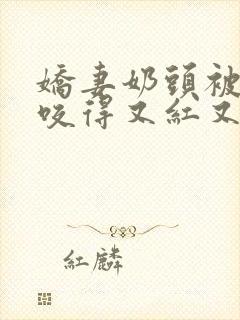 嬌妻奶頭被
咬得又紅又
紅麟